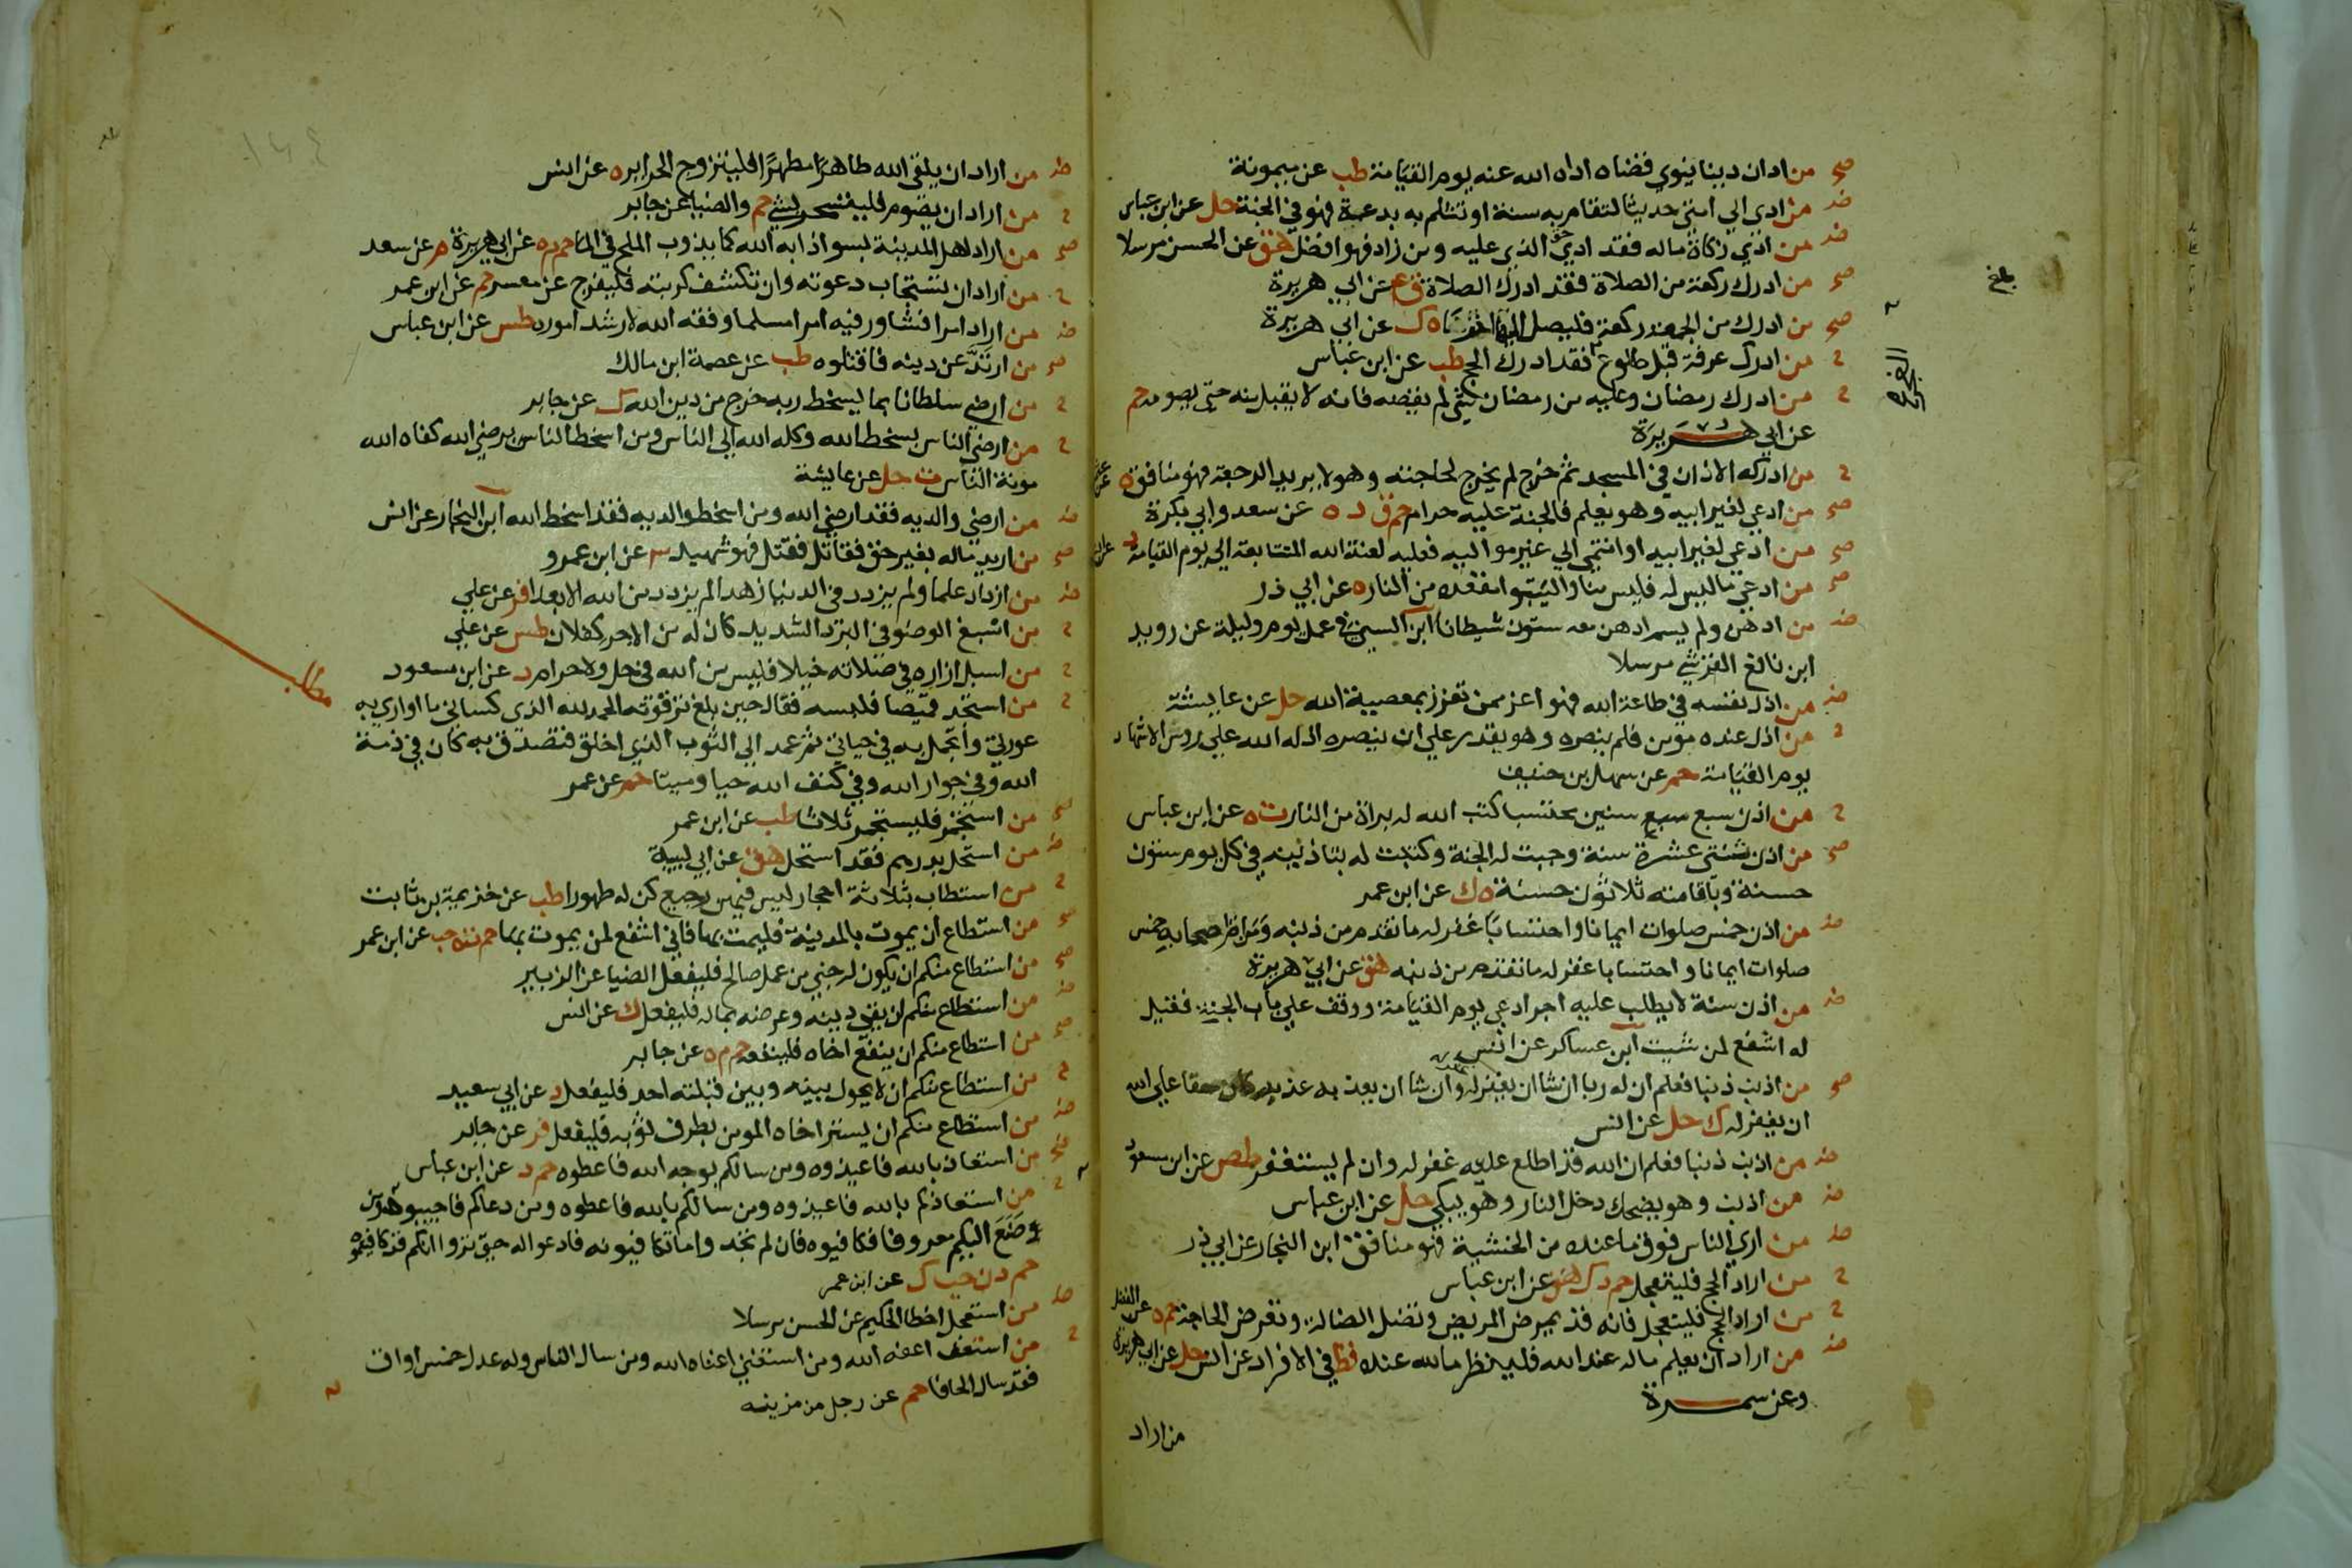 صح من ادان دينا ينوي قضاه اداه الله عنه يوم القيامة طب عن ميمونة
ضـ من ادي الي امتي حديثا لتقام به سنة او تثلم به بدعة فهو في الجنة حل عن ابن عباس
ضـ من ادي زكاة ماله فقد ادي الذي عليه ومن زاد فهو افضل هق عن الحسن مرسلا
صح من ادرك ركعة من الصلاة فقد ادرك الصلاة ق ع عن ابي هريرة
صح من ادرك من الجمعة ركعة فليصل اليها اخري ه ك عن ابي هريرة
ح من ادرك عرفة قبل طلوع فقد ادرك الحج طب عن ابن عباس
الفجر
ح من ادرك رمضان وعليه من رمضان شي لم يقضه فانه لا يقبل منه حتي يصومه حم
عن ابي هريرة
ح من ادركه الاذان في المسجد ثم خرج لم يخرج لحاجته وهو لا يريد الرجعة فهو منافق ه
صح من ادعي لغير ابيه وهو يعلم فالجنة عليه حرام حم ق د ه عن سعد وابي بكرة
صح من ادعي لغير ابيه او انتمي الي غير مواليه فعليه لعنة الله المتتابعة الي يوم القيامة د
صح من ادعي ما ليس له فليس منا وليتبوا مقعده من النار ه عن ابي ذر
ضـ من ادهن ولم يسم ادهن معه ستون شيطانا ابن السني في عمل يوم وليلة عن رويد
ابن نافع القرشي مرسلا
ضـ من اذل نفسه في طاعة الله فهو اعز ممن تعزز بمعصية الله حل عن عايشة
ح من اذل عنده مومن فلم ينصره وهو يقدر علي ان ينصره اذله الله علي روس الاشهاد
يوم القيامة حم عن سهل بن حنيف
ح من اذن سبع سنين محتسبا كتب الله له براة من النار ت ه عن ابن عباس
صح من اذن ثنتي عشرة سنة وجبت له الجنة وكتبت له بتاذينه في كل يوم ستون
حسنة وباقامته ثلاثون حسنة ه ك عن ابن عمر
ضـ من اذن خمس صلوات ايمانا واحتسابا غفر له ما تقدم من ذنبه ومن ام اصحابه خمس
صلوات ايمانا واحتسابا غفر له ما تقدم من ذنبه هق عن ابي هريرة
ضـ من اذن سنة لا يطلب عليه اجرا دعي يوم القيامة ووقف علي باب الجنة فقيل
له اشفع لمن شيت ابن عساكر عن انس
صح من اذنب ذنبا فعلم ان له ربا ان شا ان يغفر له وان شا ان يعذبه عذبه كان حقا علي الله
ان يغفر له ك حل عن انس
ضـ من اذنب ذنبا فعلم ان الله قد اطلع عليه غفر له وان لم يستغفر طص عن ابن مسعود
ضـ من اذنب وهو يضحك دخل النار وهو يبكي حل عن ابن عباس
ضـ من اري الناس فوق ما عنده من الخشية فهو منافق ابن النجار عن ابي ذر
ح من اراد الحج فليتعجل حم د ك هق عن ابن عباس
ح من اراد الحج فليتعجل فانه قد يمرض المريض وتضل الضالة وتعرض الحاجة حم ه عن الفضل
ضـ من اراد ان يعلم ماله عند الله فلينظر ما لله عنده قط في الافراد عن انس حل عن ابي هريرة
وعن سمرة
من اراد
ضـ من اراد ان يلقي الله طاهرا مطهرا فليتزوج الحراير ه عن انس
ح من اراد ان يصوم فليتسحر بشي حم والضيا عن جابر
صح من اراد اهل المدينة بسو اذابه الله كما يذوب الملح في الما حم م ه عن ابي هريرة م عن سعد
ح من اراد ان تستجاب دعوته وان تكشف كربته فليفرج عن معسر حم عن ابن عمر
ضـ من اراد امرا فشاور فيه امرا مسلما وفقه الله لارشد اموره طس عن ابن عباس
صح من ارتد عن دينه فاقتلوه طب عن عصمة ابن مالك
ح من ارضي سلطانا بما يسخط ربه خرج من دين الله ك عن جابر
ح من ارضي الناس بسخط الله وكله الله الي الناس ومن اسخط الناس برضي الله كفاه الله
مونة الناس ت حل عن عايشة
ضـ من ارضي والديه فقد ارضي الله ومن اسخط والديه فقد اسخط الله ابن النجار عن انس
صح من اريد ماله بغير حق فقاتل فقتل فهو شهيد عن ابن عمرو
ضـ من ازداد علما ولم يزدد في الدنيا زهدا لم يزدد من الله الا بعدا فر عن علي
ح من اسبغ الوضو في البرد الشديد كان له من الاجر كفلان طس عن علي
ح من اسبل ازاره في صلاته خيلا فليس من الله في حل ولا حرام د عن ابن مسعود
مطلب
ح من استجد قميصا فلبسه فقال حين بلغ ترقوته الحمد لله الذي كساني ما اواري به
عورتي واتجمل به في حياتي ثم عمد الي الثوب الذي اخلق فتصدق به كان في ذمة
الله وفي جوار الله وفي كنف الله حيا وميتا حم عن عمر
صح من استجمر فليستجمر ثلاثا طب عن ابن عمر
ضـ من استحل بدرهم فقد استحل هق عن ابي لبيبة
ح من استطاب بثلاثة احجار ليس فيهن رجيع كن له طهورا طب عن خزيمة بن ثابت
صح من استطاع ان يموت بالمدينة فليمت بها فاني اشفع لمن يموت بها حم ت ه حب عن ابن عمر
صح من استطاع منكم ان يكون له خبي من عمل صالح فليفعل الضيا عن الزبير
ضـ من استطاع منكم ان يقي دينه وعرضه بماله فليفعل ك عن انس
صح من استطاع منكم ان ينفع اخاه فلينفعه حم م ه عن جابر
ح من استطاع منكم ان لا يحول بينه وبين قبلته احد فليفعل د عن ابي سعيد
ضـ من استطاع منكم ان يستر اخاه المومن بطرف ثوبه فليفعل فر عن جابر
صح من استعاذ بالله فاعيذوه ومن سالكم بوجه الله فاعطوه حم د عن ابن عباس
ح من استعاذكم بالله فاعيذوه ومن سالكم بالله فاعطوه ومن دعاكم فاجيبوه ومن
صنع اليكم معروفا فكافيوه فان لم تجدوا ما تكافيونه فادعوا له حتي تروا انكم قد كافيتموه
حم د ن حب ك عن ابن عمر
ضـ من استعجل اخطا الحكيم عن الحسن مرسلا
ح من استعف اعفه الله ومن استغني اغناه الله ومن سال الناس وله عدل خمس اواق
فقد سال الحافا حم عن رجل من مزينه